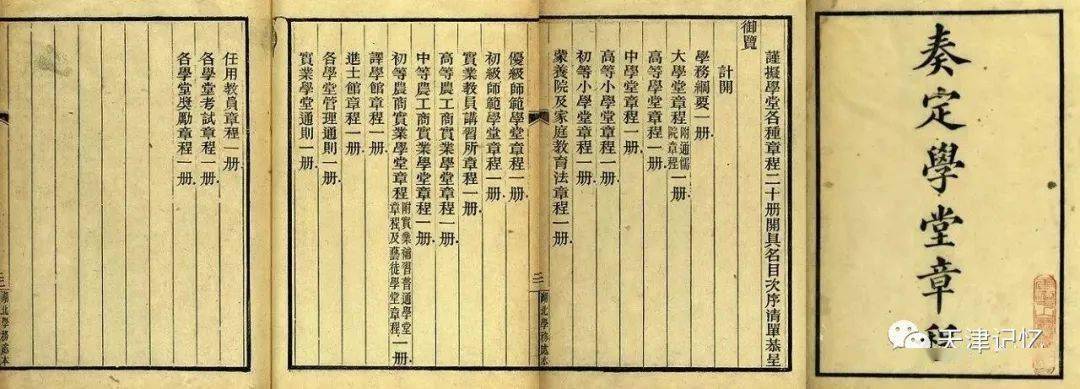 奏定學堂章程
謹擬學堂各種章程二十册開具名目次序清單恭呈
御覽
計開
學務綱要一册
大學堂章程附通儒院章程一册
高等學堂章程一册
中學堂章程一册
高等小學堂章程一册
初等小學堂章程一册
蒙養院及家庭教育法章程一册
二
湖北學務處本
優級師範學堂章程一册
初級師範學堂章程一册
實業教員講習所章程一册
高等農工商實業學堂章程一册
中等農工商實業學堂章程一册
初等農商實業學堂章程附實業補習普通學堂章程及藝徒學堂章程一册
譯學館章程一册
進士館章程一册
各學堂管理通則一册
實業學堂通則一册
任用教員章程一册
各學堂考試章程一册
各學堂獎勵章程一册
三
湖北學務處本
天津记忆